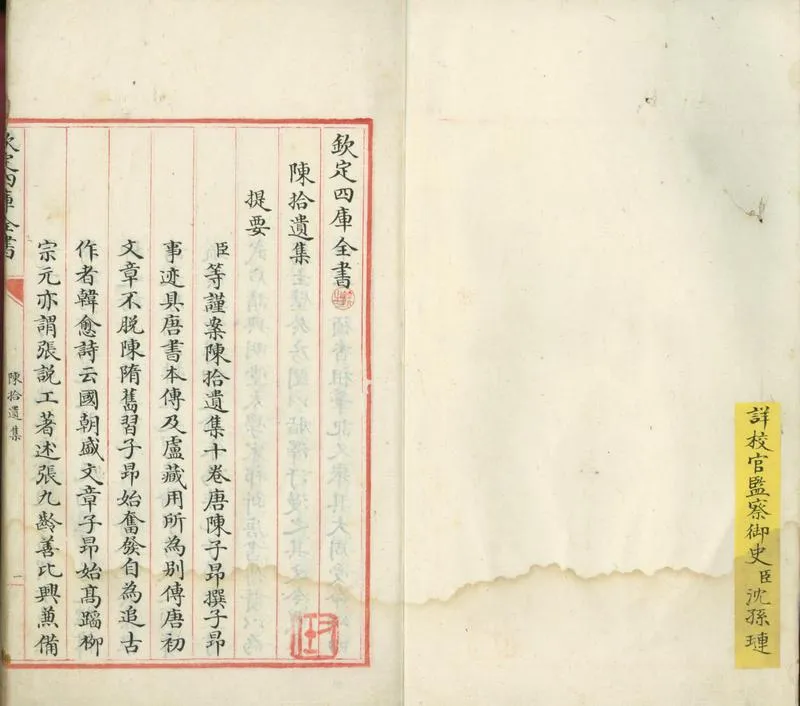 詳校官監察御史臣沈孫璉
欽定四庫全書
陳拾遺集
提要
臣等謹案陳拾遺集十卷唐陳子昂撰子昂
事迹具唐書本傳及盧藏用所為别傳唐初
文章不脱陳隋舊習子昂始奮發自為追古
作者韓愈詩云國朝盛文章子昂始髙蹈柳
宗元亦謂張説工著述張九齡善比興兼備
欽定四庫全書
陳拾遺集
一